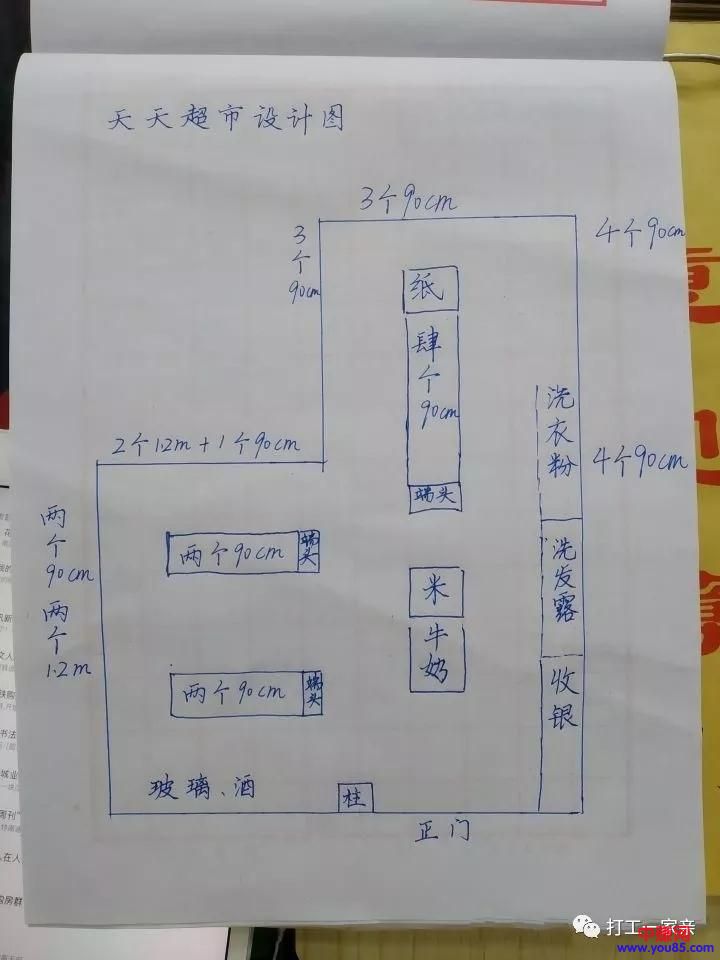 天天超市设计图
3个90cm
3个90cm
4个90cm
纸
肆个90cm
洗衣粉
2个1.2m+1个90cm
4个90cm
端头
两个90cm
两个1.2m
两个90cm
端头
洗发露
米
牛奶
两个90cm
端头
收银
玻璃、酒
柱
正门
打工一家亲
www.you85.com